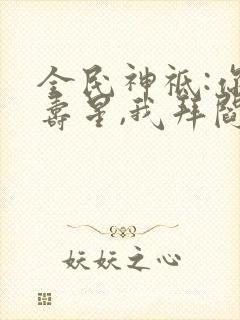 全民神祇:你
寿星,我拜阎
妖妖之心